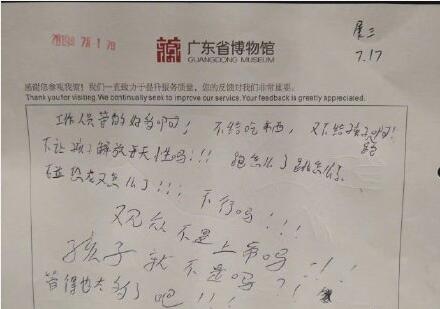 2019年7月17日
星三
7.17
广东省博物馆
GUANGDONG MUSEUM
感谢您参观我馆！我们一直致力于提升服务质量，您的反馈对我们非常重要。
Thank you for visiting. We continually seek to improve our service. Your feedback is greatly appreciated.
工作人员管的好多啊！ 不给吃东西，又不给孩子跑！
不让孩子解放天性吗!!! 跑怎么了跳怎么了
碰 又怎么了!!!
不行吗!!!
观众不是上帝吗
孩子就不是吗?!!!
管得也太多了吧!!!